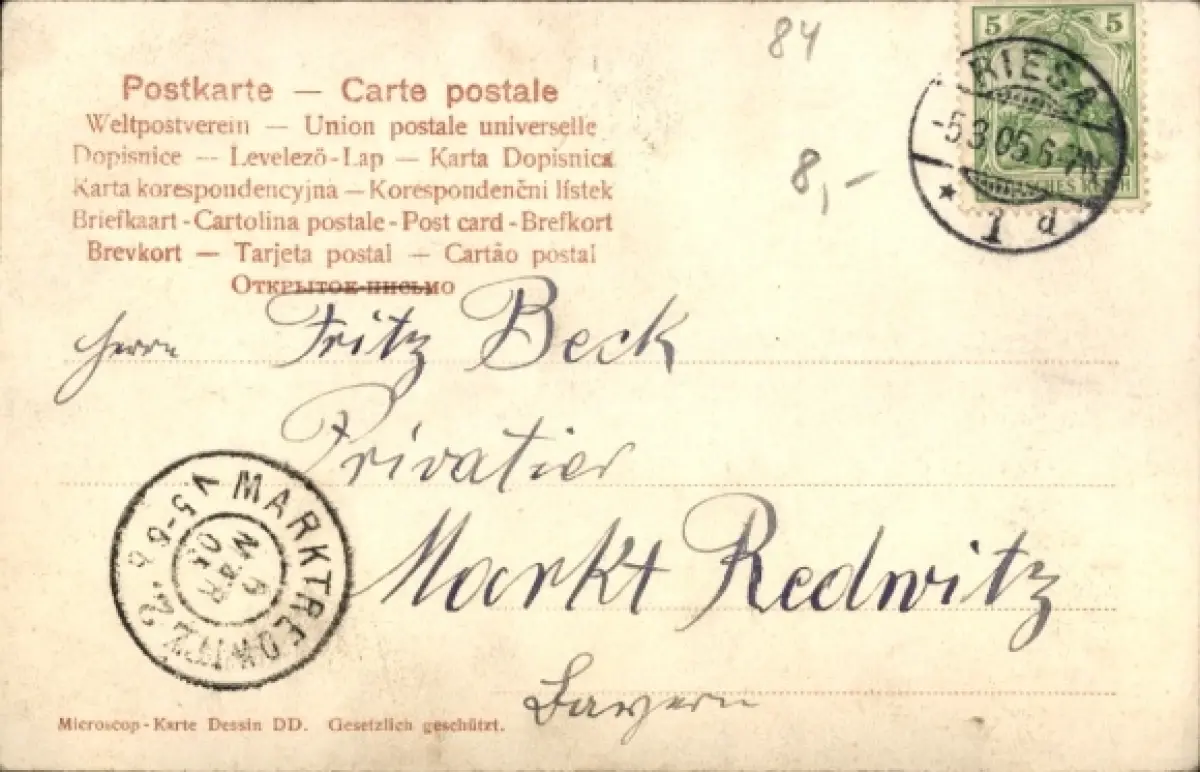 84
5 5
RIESA
-5.3.05.6-7N
* 1 d
8,-
Postkarte — Carte postale
Weltpostverein — Union postale universelle
Dopisnice — Levelező-Lap — Karta Dopisnica
Karta korespondencyjna — Korespondenčni lístek
Briefkaart - Cartolina postale - Post card - Brefkort
Brevkort — Tarjeta postal — Cartão postal
Открыток-письмо
Herrn Fritz Beck
Privatier
Markt Redwitz
Bayern
MARKTREDWITZ 2.
6
MÄR
05
Microscop-Karte Dessin DD. Gesetzlich geschützt.